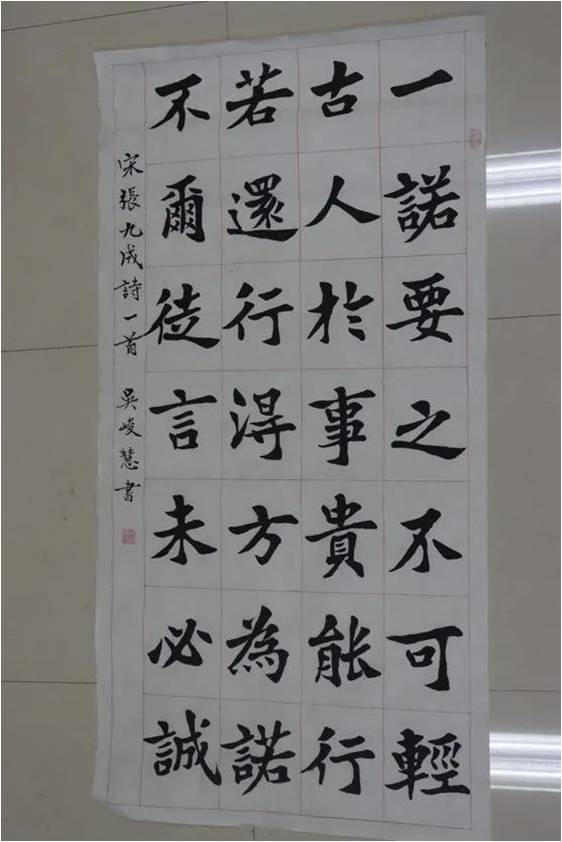 一諾要之不可輕
古人於事貴能行
若還行得方為諾
不爾徒言未必誠
宋張九成詩一首 吳峻慧書